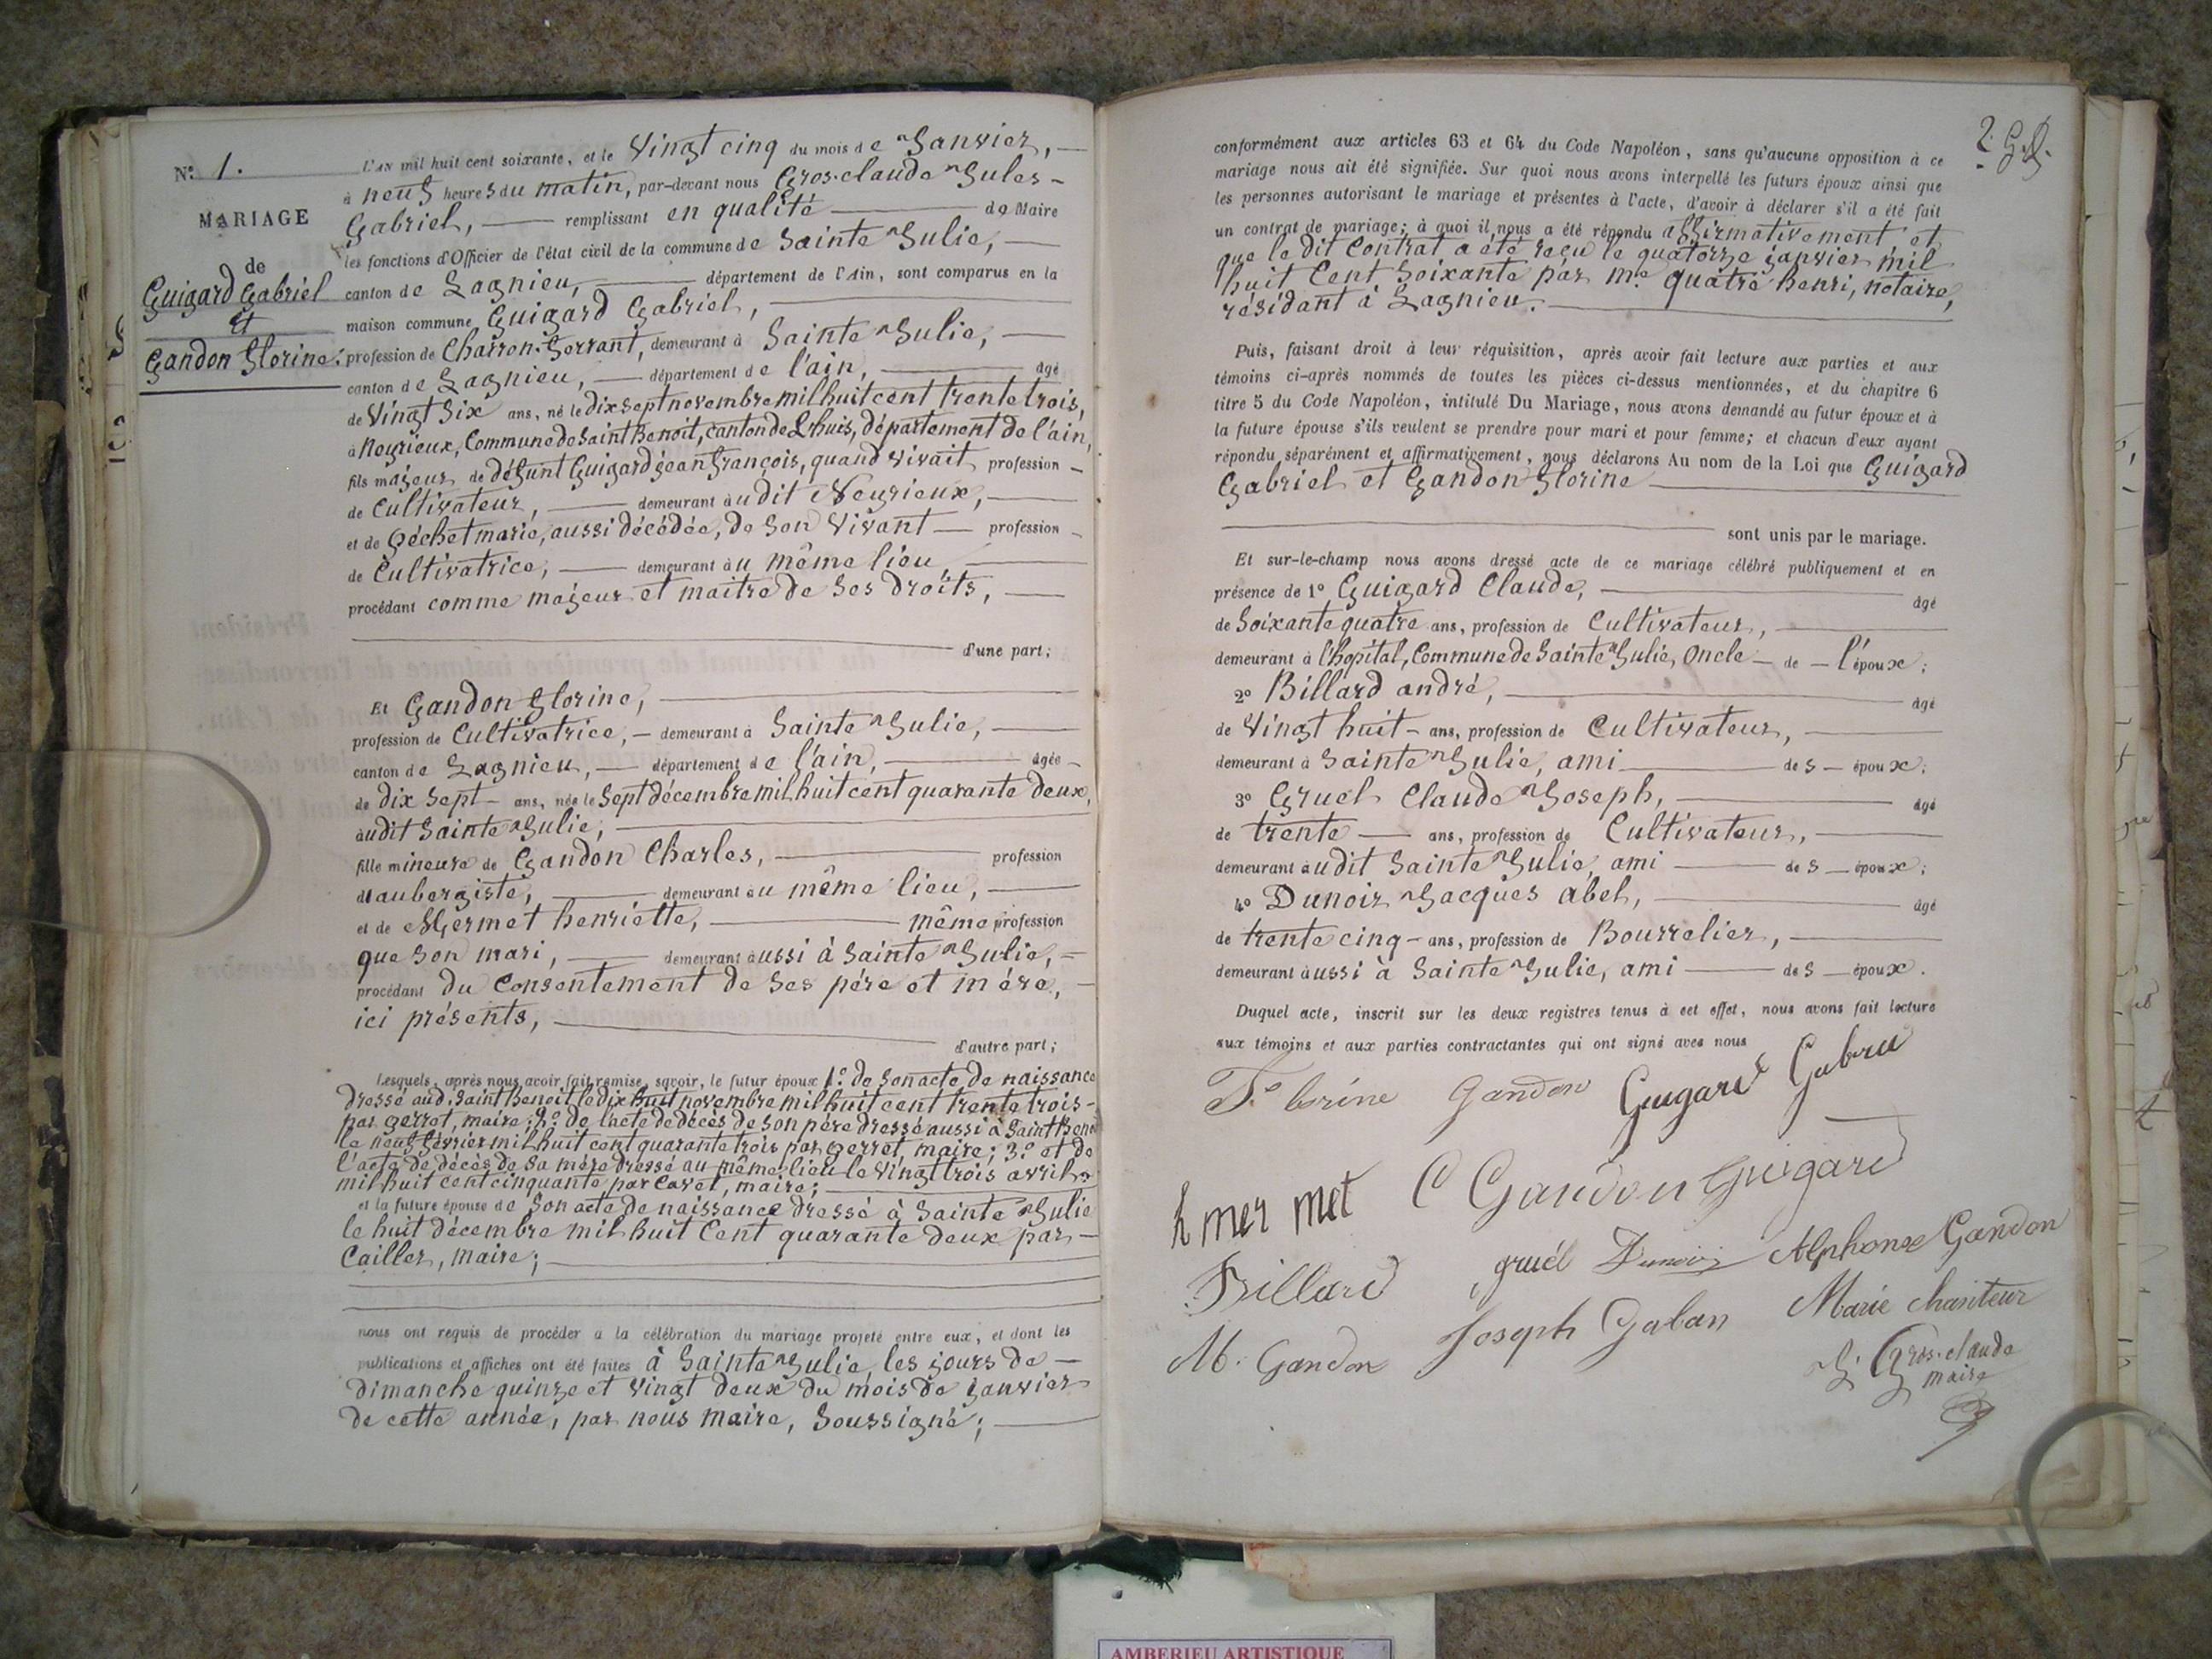 N.° 1.
MARIAGE
de
Guigard Gabriel
et
Gandon Florine.
L'AN mil huit cent soixante, et le Vingt cinq du mois de Janvier,
à neuf heures du matin, par-devant nous Gros-claude Jules-
Gabriel, remplissant en qualité de Maire
les fonctions d'Officier de l'état civil de la commune de Sainte Julie,
canton de Lagnieu, département de l'Ain, sont comparus en la
maison commune Guigard Gabriel,
profession de Charron-Ferrant, demeurant à Sainte Julie,
canton de Lagnieu, département de l'ain, âgé
de Vingt Six ans, né le dix sept novembre mil huit cent trente trois,
à Neyrieux, Commune de Saint Benoit, canton de Lhuis, département de l'ain,
fils majeur de défunt Guigard jean françois, quand vivait profession
de Cultivateur, demeurant audit Neyrieux,
et de Péchet marie, aussi décédée, de son vivant profession
de Cultivatrice, demeurant au même lieu,
procédant comme majeur et maitre de ses droits,
d'une part;
Et Gandon florine,
profession de Cultivatrice, demeurant à Sainte Julie,
canton de Lagnieu, département de l'ain, âgée
de dix sept ans, née le Sept décembre mil huit cent quarante deux,
audit Sainte Julie,
fille mineure de Gandon Charles, profession
d'aubergiste, demeurant au même lieu,
et de Mermet henriette, même profession
que son mari, demeurant aussi à Sainte Julie,
procédant du Consentement de ses pére et mére,
ici présents,
d'autre part;
Lesquels, après nous avoir fait remise, savoir, le futur époux 1.° de son acte de naissance
dressé aud. Saint Benoit le dix huit novembre mil huit cent trente trois
par perret, maire; 2.° de l'acte de décès de son pére dressé aussi à Saint Benoit
le neuf février mil huit cent quarante trois par perret, maire; 3.° et de
l'acte de décès de sa mére dressé au même lieu le vingt trois avril
mil huit cent cinquante par Cavet, maire;
et la future épouse de son acte de naissance dressé à Sainte Julie
le huit décembre mil huit Cent quarante deux par
Cailler, maire;
nous ont requis de procéder à la célébration du mariage projeté entre eux, et dont les
publications et affiches ont été faites à Sainte Julie les jours de
dimanche quinze et vingt deux du mois de janvier
de cette année, par nous maire, Soussigné;
2.
conformément aux articles 63 et 64 du Code Napoléon, sans qu'aucune opposition à ce
mariage nous ait été signifiée. Sur quoi nous avons interpellé les futurs époux ainsi que
les personnes autorisant le mariage et présentes à l'acte, d'avoir à déclarer s'il a été fait
un contrat de mariage; à quoi il nous a été répondu affirmativement, et
que le dit Contrat a été reçu le quatorze janvier mil
huit Cent Soixante par m.e quatre henri, notaire,
résidant à Lagnieu.
Puis, faisant droit à leur réquisition, après avoir fait lecture aux parties et aux
témoins ci-après nommés de toutes les pièces ci-dessus mentionnées, et du chapitre 6
titre 5 du Code Napoléon, intitulé Du Mariage, nous avons demandé au futur époux et à
la future épouse s'ils veulent se prendre pour mari et pour femme; et chacun d'eux ayant
répondu séparément et affirmativement, nous déclarons Au nom de la Loi que Guigard
Gabriel et Gandon Florine
sont unis par le mariage.
Et sur-le-champ nous avons dressé acte de ce mariage célébré publiquement et en
présence de 1° Guigard Claude, âgé
de Soixante quatre ans, profession de Cultivateur,
demeurant à l'hopital, Commune de Sainte Julie, Oncle de l'époux;
2° Billard andré, âgé
de Vingt huit ans, profession de Cultivateur,
demeurant à Sainte Julie, ami des époux;
3° Gruel Claude Joseph, âgé
de trente ans, profession de Cultivateur,
demeurant audit Sainte Julie, ami des époux;
4° Dunoir Jacques abel, âgé
de trente cinq ans, profession de Bourrelier,
demeurant aussi à Sainte Julie, ami des époux.
Duquel acte, inscrit sur les deux registres tenus à cet effet, nous avons fait lecture
aux témoins et aux parties contractantes qui ont signé avec nous
Florine Gandon Guigard Gabriel
h mer met C Gandon Guigard
Billard gruel Dunoir Alphonse Gandon
M. Gandon Joseph Galan Marie chariteur
J. G Gros-claude
maire
AMBERIEU ARTISTIQUE